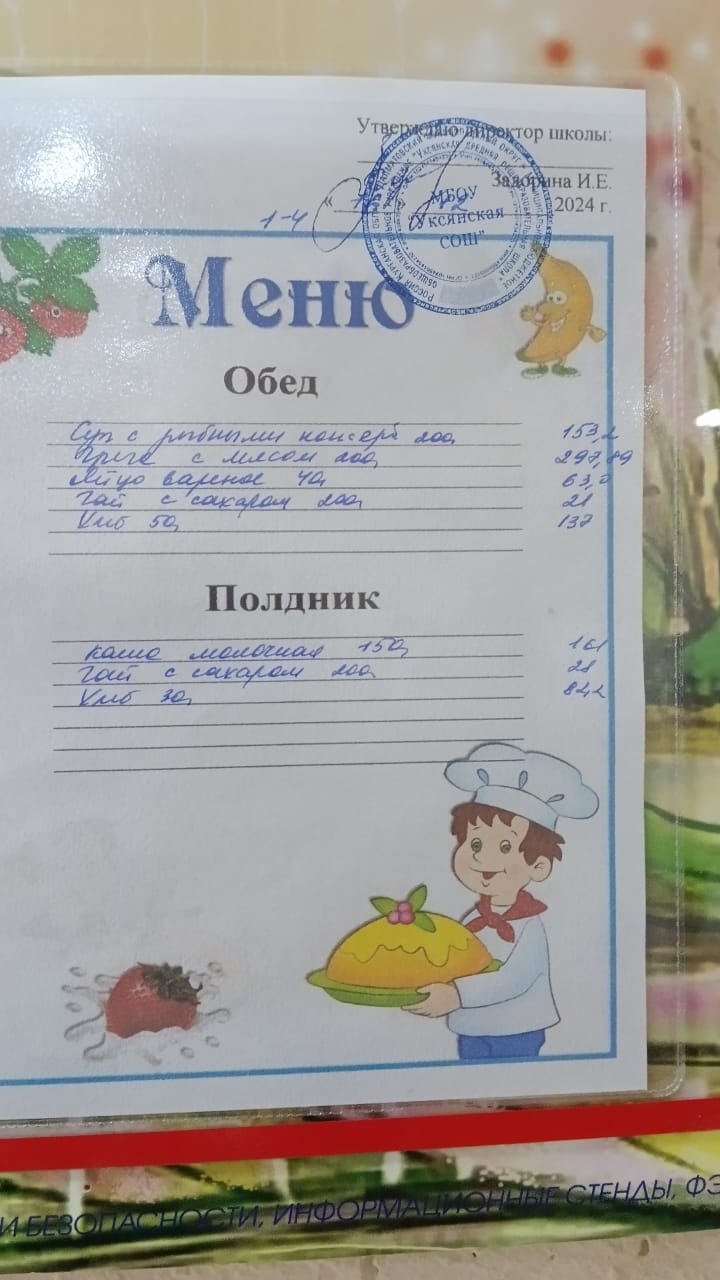 Утверждаю директор школы:
Задорина И.Е.
2024 г.
1-4
МБОУ
"Уксянская
СОШ"
Меню
Обед
Суп с рыбными консерв 200 153,2
с мясом 200 297,89
Яйцо вареное 40 63,
Чай с сахаром 200 28
Хлеб 50 137
Полдник
каша молочная 150 161
Чай с сахаром 200 28
Хлеб 30 82,2
И БЕЗОПАСНОСТИ, ИНФОРМАЦИОННЫЕ СТЕНДЫ, ФЭ